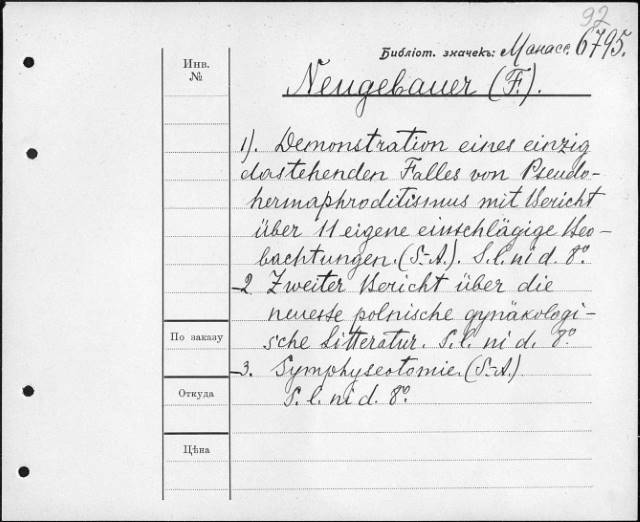 92
Библіот. значекъ: Манасс. 6795.
Инв.
№
Neugebauer (F.).
1). Demonstration eines einzig
dastehenden Falles von Pseudo-
hermaphroditismus mit Bericht
über 11 eigene einschlägige Beo-
bachtungen. (S.-A.). S. l. ni d. 8º
2. Zweiter Bericht über die
neueste polnische gynäkologi-
sche Litteratur. S. l. ni d. 8º
По заказу
3. Symphyseotomie. (S.-A.)
S. l. ni d. 8º
Откуда
Цѣна